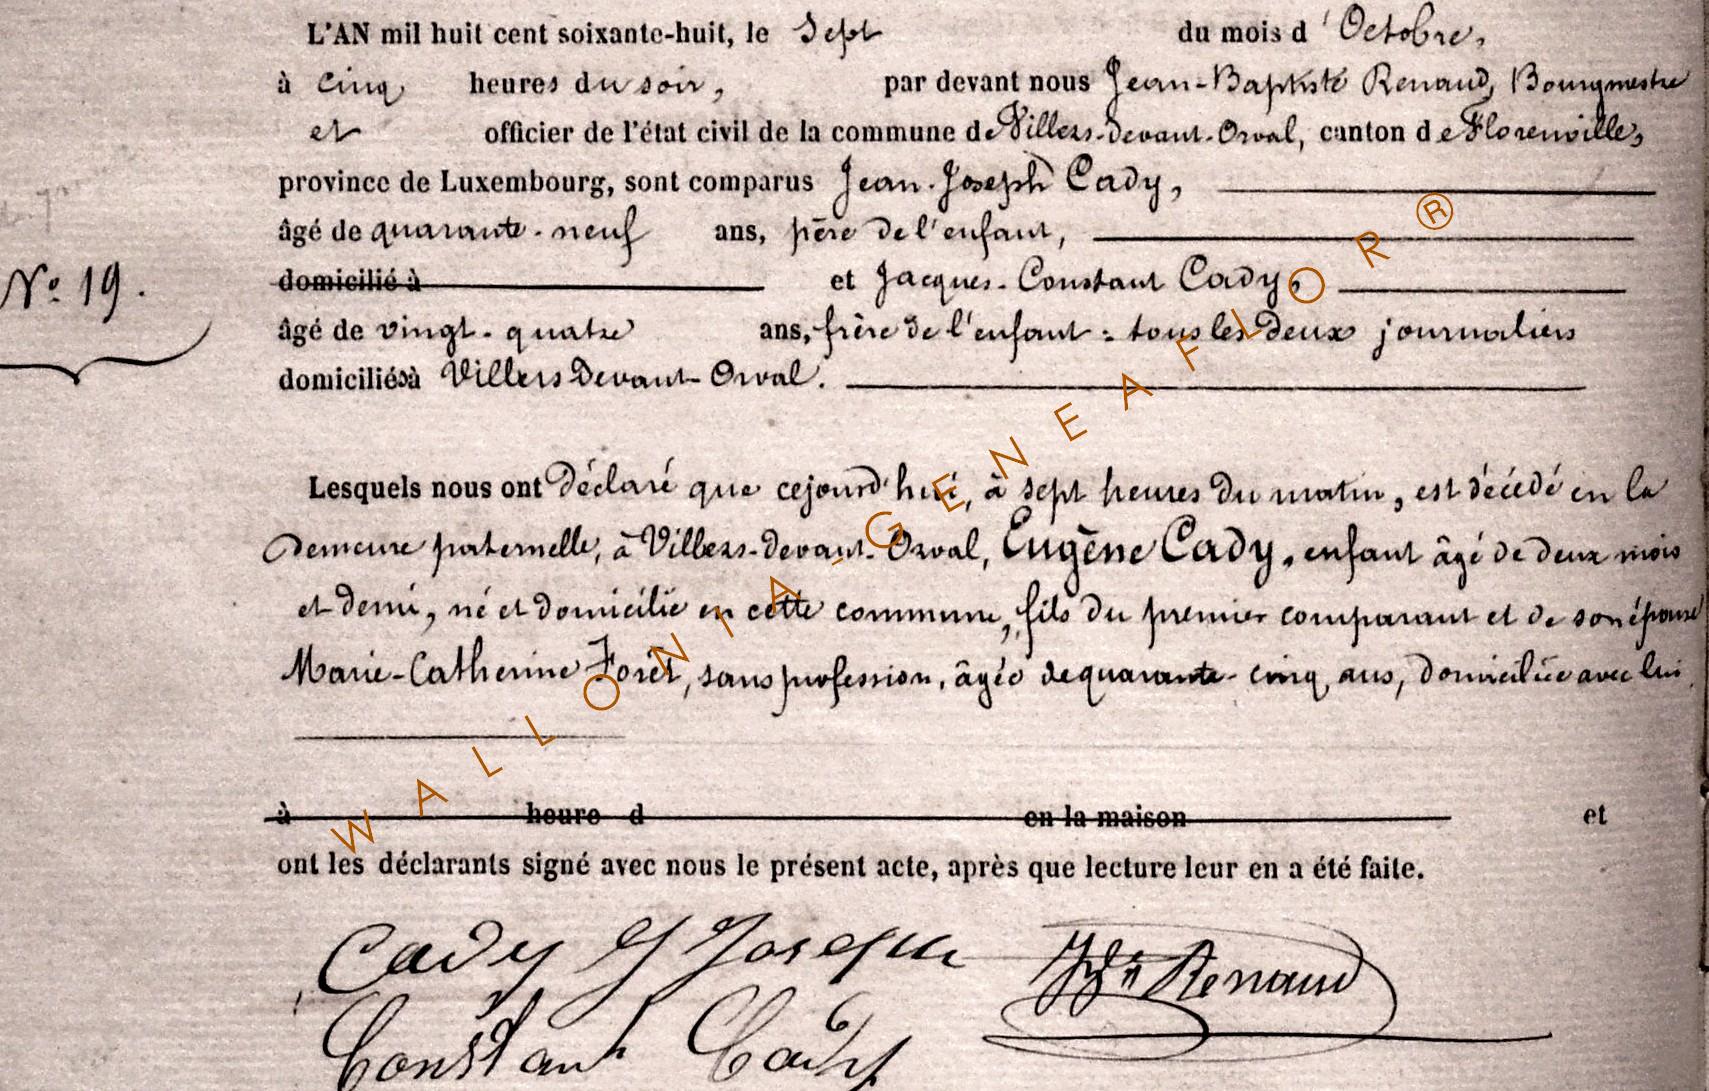 L'AN mil huit cent soixante-huit, le Sept du mois d'Octobre,
à cinq heures du soir, par devant nous Jean-Baptiste Renaud, Bourgmestre
et officier de l'état civil de la commune de Villers-devant-Orval, canton de Florenville,
province de Luxembourg, sont comparus Jean-Joseph Cady,
âgé de quarante-neuf ans, père de l'enfant,
N° 19.
domicilié à et Jacques-Constant Cady,
âgé de vingt-quatre ans, frère de l'enfant : tous les deux journaliers
domiciliés à Villers-Devant-Orval.
Lesquels nous ont déclaré que cejourd'hui, à sept heures du matin, est décédé en la
demeure paternelle, à Villers-devant-Orval, Eugène Cady, enfant âgé de deux mois
et demi, né et domicilié en cette commune, fils du premier comparant et de son épouse
Marie-Catherine Forêt, sans profession, âgée de quarante-cinq ans, domiciliée avec lui.
à heure d en la maison et
ont les déclarants signé avec nous le présent acte, après que lecture leur en a été faite.
Cady J Joseph
Jbte Renaud
Constant Cady
WALLONIA-GENEAFLOR®